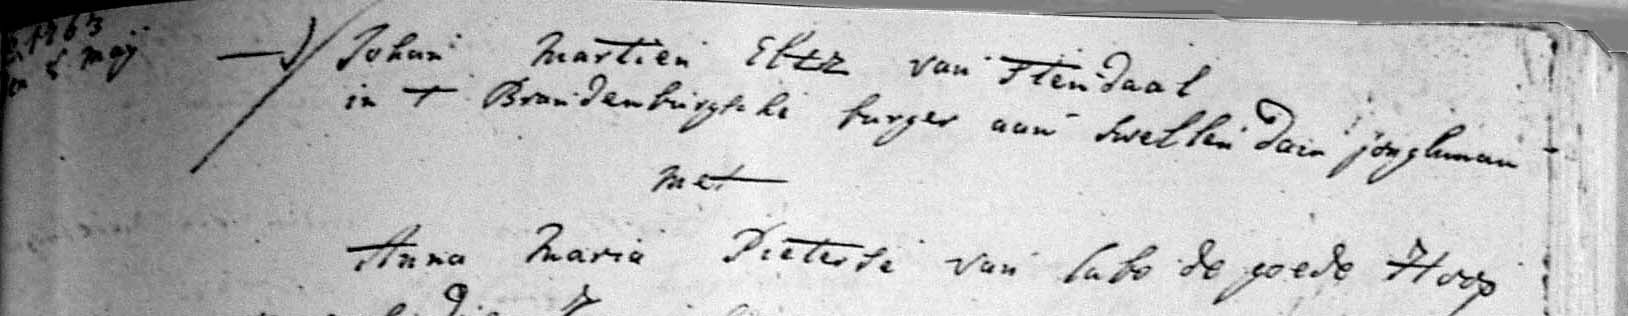 1763
8 Maij
Johan Martien Eltz van Stendaal
in t Brandenburgsche burger aan Swellendam jonghman
met
Anna Maria Pieterse van Cabo de goede Hoop